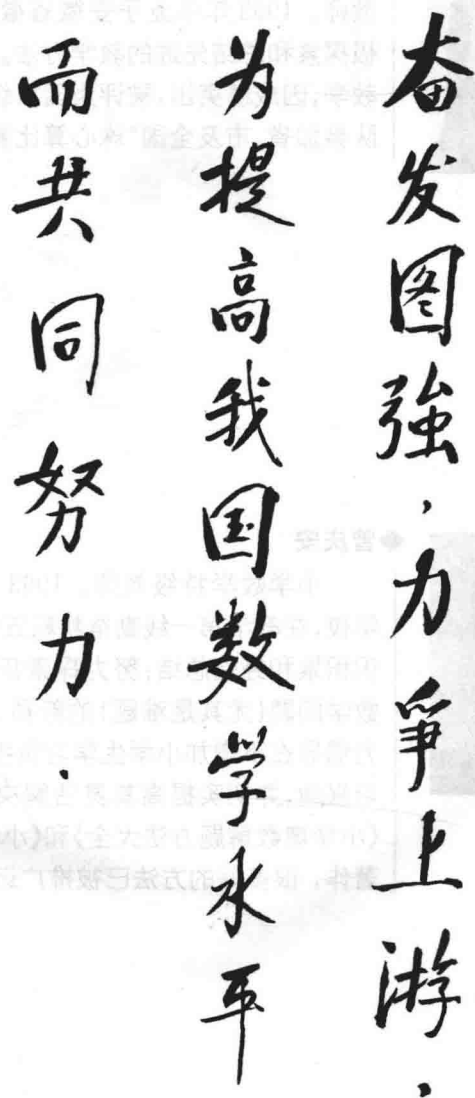 奋发图強，力争上游，
为提高我国数学水平
而共同努力.